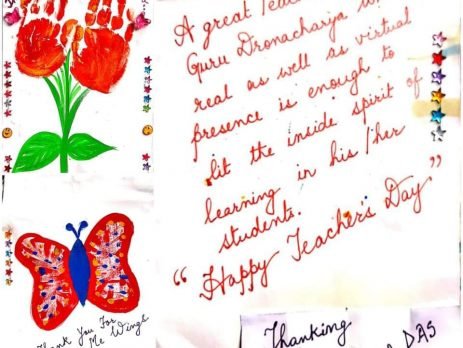 A great Teac
Guru Dronacharya
real as well as virtual
presence is enough to
lit the inside spirit of
learning in his/her
students.
"Happy Teacher's Day"
Thank You For
Me Wings
Thanking
DAS